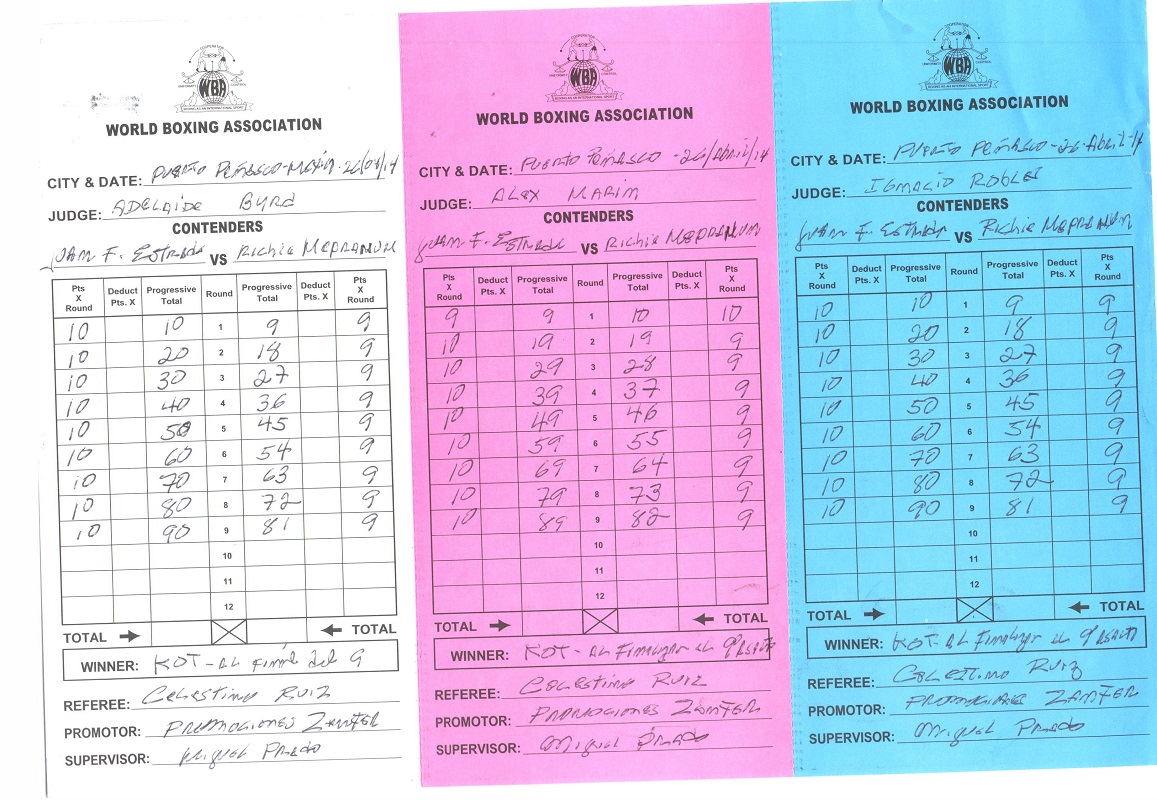 COOPERATION
UNIFORMITY WBA CONTROL
BOXING AS AN INTERNATIONAL SPORT
WORLD BOXING ASSOCIATION
CITY & DATE: PUERTO PEÑASCO-MEXICO-26/04/14
JUDGE: ADELAIDE BYRD
CONTENDERS
JUAN F. ESTRADA VS RICHIE MEPRANUM
Pts X Round Deduct Pts. X Progressive Total Round Progressive Total Deduct Pts. X Pts X Round
10 10 1 9 9
10 20 2 18 9
10 30 3 27 9
10 40 4 36 9
10 50 5 45 9
10 60 6 54 9
10 70 7 63 9
10 80 8 72 9
10 90 9 81 9
10
11
12
TOTAL TOTAL
WINNER: KOT-AL final del 9
REFEREE: Celestino Ruiz
PROMOTOR: PROMOCIONES ZANFER
SUPERVISOR: Miguel PRADO
COOPERATION
UNIFORMITY WBA CONTROL
BOXING AS AN INTERNATIONAL SPORT
WORLD BOXING ASSOCIATION
CITY & DATE: PUERTO PEÑASCO -26/ABRIL/14
JUDGE: ALEX MARIM
CONTENDERS
JUAN F. ESTRADA VS RICHIE MEPRANUM
Pts X Round Deduct Pts. X Progressive Total Round Progressive Total Deduct Pts. X Pts X Round
9 9 1 10 10
10 19 2 19 9
10 29 3 28 9
10 39 4 37 9
10 49 5 46 9
10 59 6 55 9
10 69 7 64 9
10 79 8 73 9
10 89 9 82 9
10
11
12
TOTAL TOTAL
WINNER: KOT- AL Finalizar el 9º ASALTO
REFEREE: Celestino RUIZ
PROMOTOR: PROMOCIONES ZANFER
SUPERVISOR: Miguel PRADO
COOPERATION
UNIFORMITY WBA CONTROL
BOXING AS AN INTERNATIONAL SPORT
WORLD BOXING ASSOCIATION
CITY & DATE: PUERTO PEÑASCO-26-ABRIL-14
JUDGE: IGNACIO ROBLES
CONTENDERS
JUAN F. ESTRADA VS RICHIE MEPRANUM
Pts X Round Deduct Pts. X Progressive Total Round Progressive Total Deduct Pts. X Pts X Round
10 10 1 9 9
10 20 2 18 9
10 30 3 27 9
10 40 4 36 9
10 50 5 45 9
10 60 6 54 9
10 70 7 63 9
10 80 8 72 9
10 90 9 81 9
10
11
12
TOTAL TOTAL
WINNER: KOT-AL Finalizar el 9º ASALTO
REFEREE: CELESTINO RUIZ
PROMOTOR: PROMOCIONES ZANFER
SUPERVISOR: Miguel PRADO